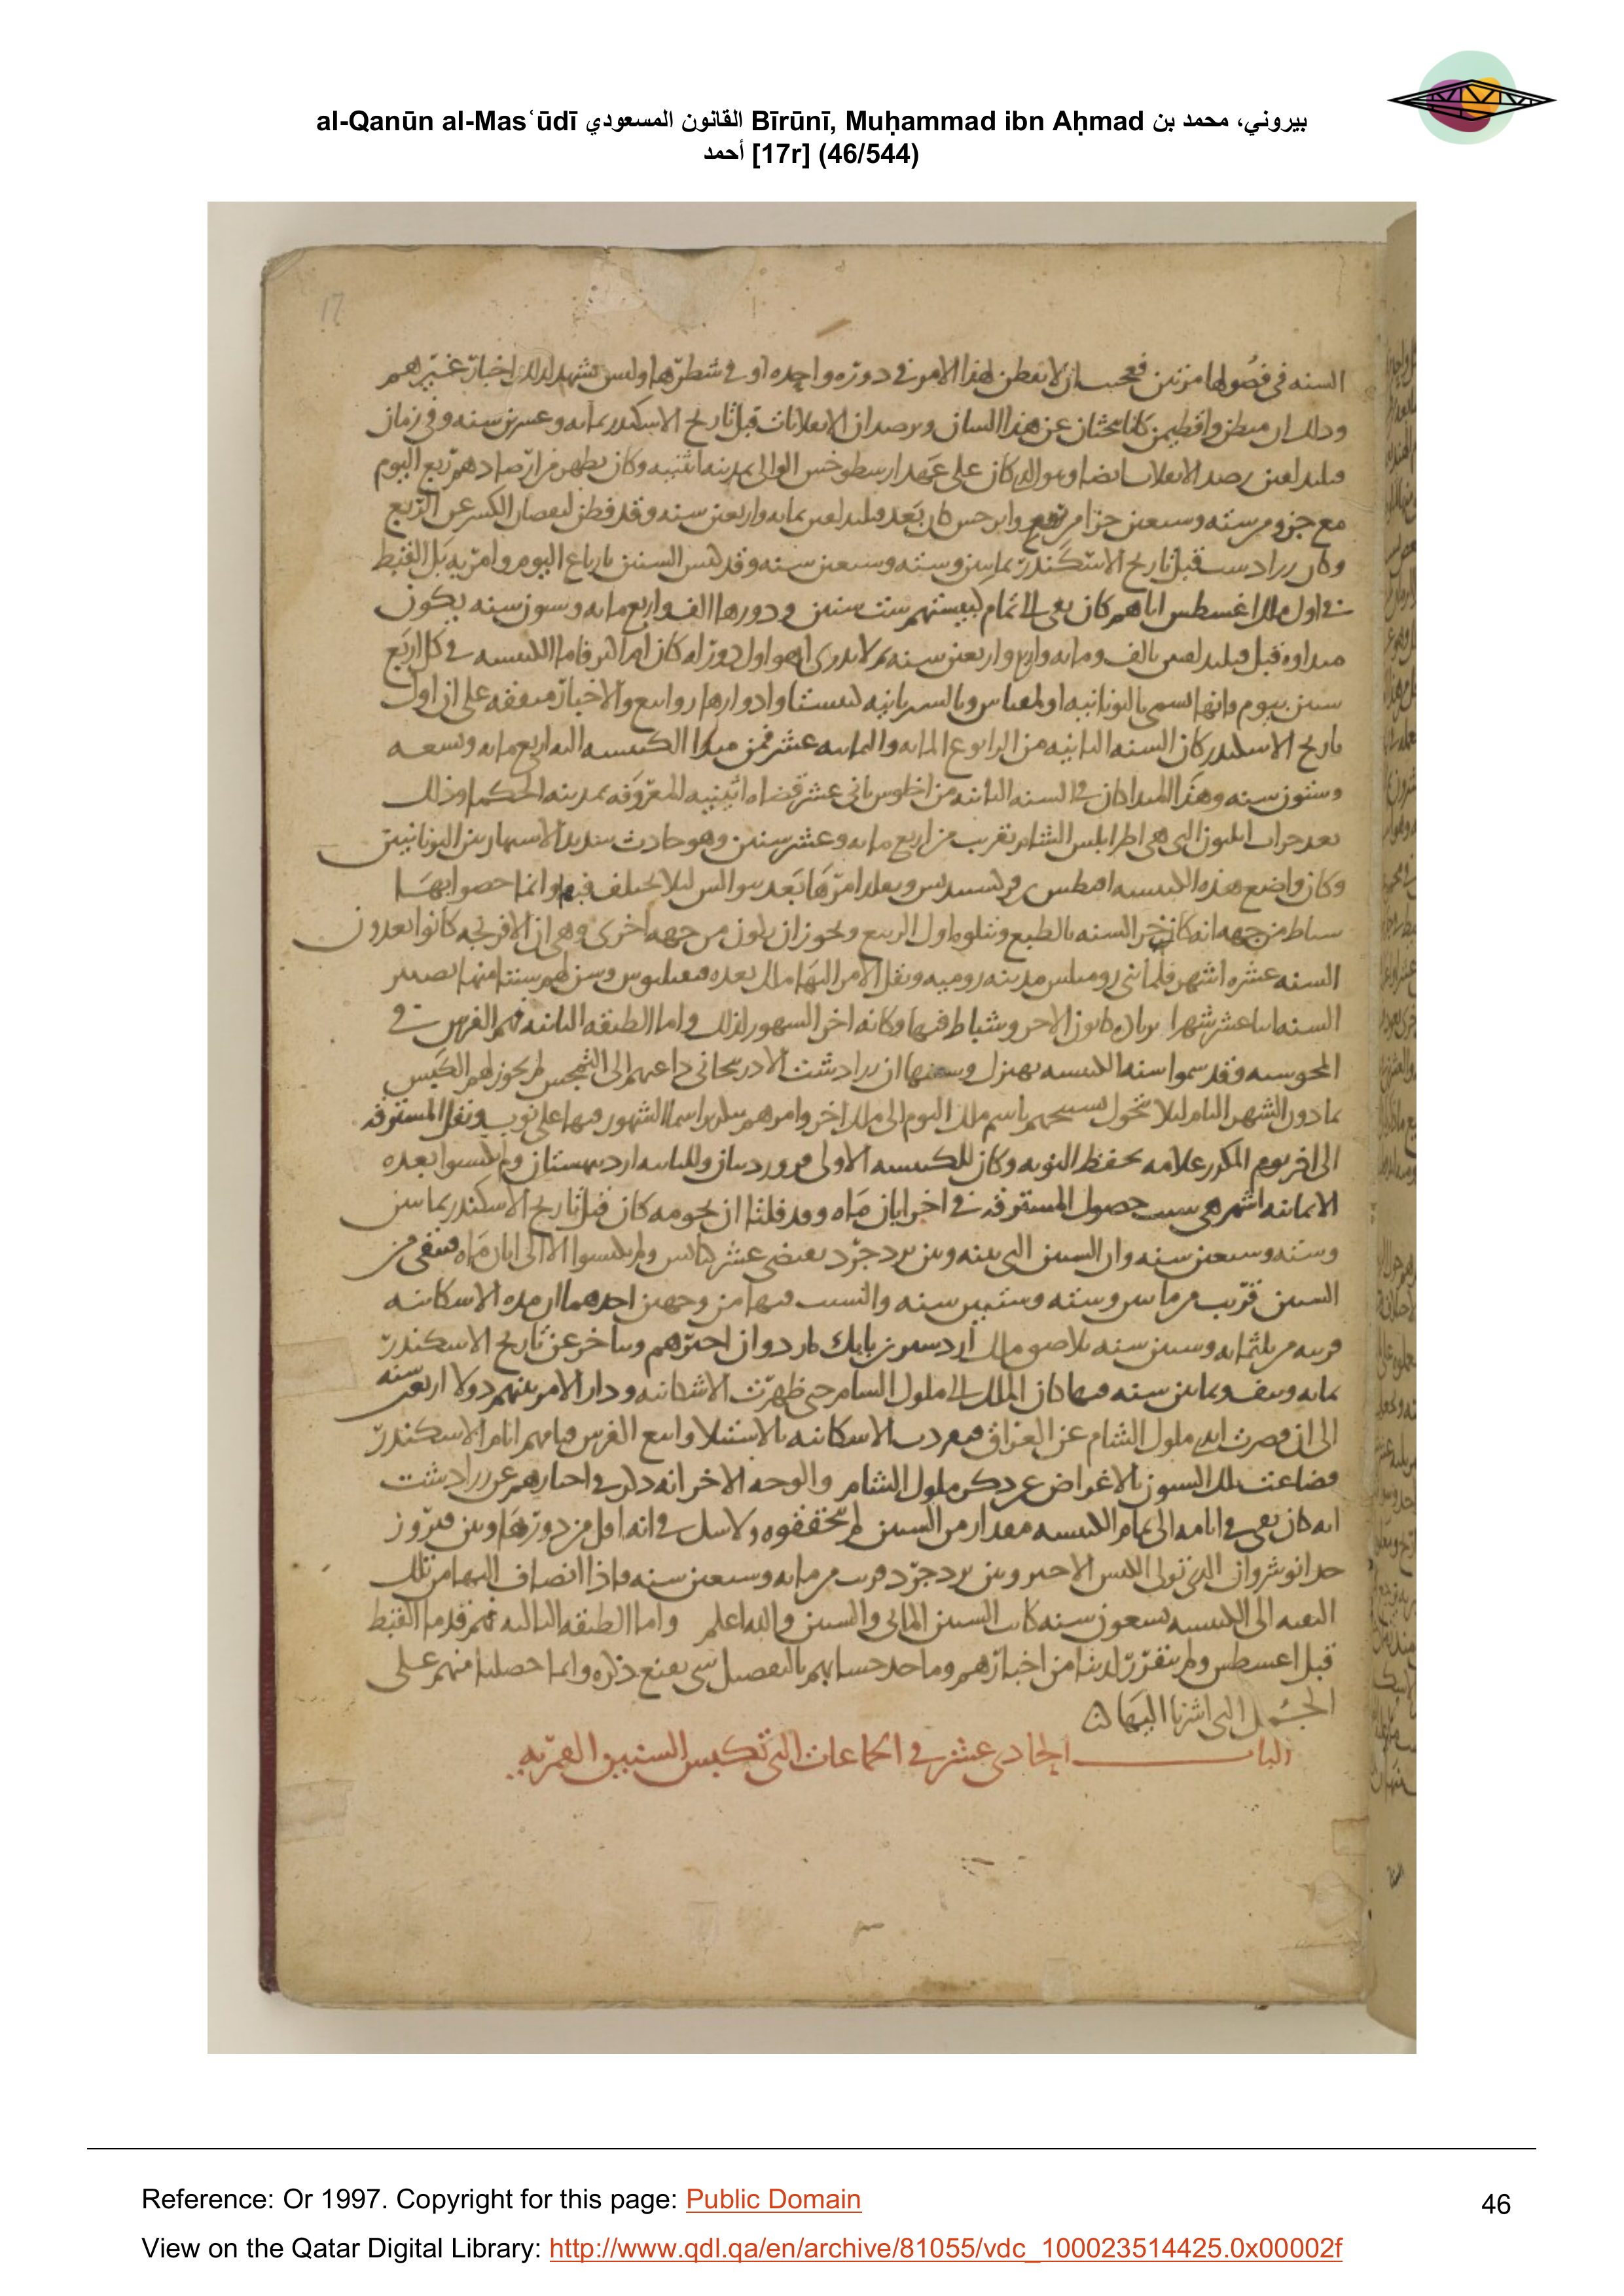 al-Qanūn al-Masʿūdī القانون المسعودي Bīrūnī, Muḥammad ibn Aḥmad بيروني، محمد بن
أحمد [17r] (46/544)
17
السنه في فصولها مرتين فعجب ان لا يفطن لهذا الامر في دوره واحده او في شطرها وليس تشهد لذلك اخبار غيرهم
وذلك ان ميطن واقطيمن كانا يبحثان عن هذا الشان ويرصدان الانقلابات قبل تاريخ الاسكندر بمايه وعشرين سنه وفي زمان
رصد الانقلاب ايضا وهو الذي كان على عهد ارسطوخس الوالي بمدينه اثينيه وكان يظهر من ارصادهم ربع اليوم
مع جزو من سته وسبعين جزا من وابرخس كان بعد بمايه واربعين سنه وقد فطن لنقصان الكسر عن الربع
وكان زرادشت قبل تاريخ الاسكندر بمايتين وسته وسبعين سنه وقد كبس السنين بارباع اليوم وامر به بل القبط
في اول ملك اغسطس اياهم كان بقي الى تمام كبيستهم ست سنين ودورها الف واربع مايه وستون سنه يكون
مبداوه قبل بالف ومايه واربع واربعين سنه ثم لا يدري اهو اول دور ام كان الكبيسه في كل اربع
سنين بيوم وانها تسمى باليونانيه اولمفياس وبالسريانيه كبيشتا وادوارها روابيع والاخبار متفقه على ان اول
تاريخ الاسكندر كان السنه الثانيه من الرابوع المايه والثمانيه عشر فمن مبدا الكبيسه اليه اربع مايه وتسعه
وستون سنه وهذا المبدا كان في السنه الثانيه من ثاني عشر قضاه اثينيه المعروفه بمدينه الحكما وذلك
بعد خراب ايليون التي هي اطرابلس الشام بقريب من اربع مايه وعشر سنين وهو حادث شديد الاشتهار بين اليونانيين
وكان واضع هذه الكبيسه بعد ليلا يختلف فيها وانما خصوا بها
شباط من جهه انه كان اخر السنه بالطبع ويتلوه اول الربيع ويجوز ان يكون من جهه اخرى وهي ان الافرنجه كانوا يعدون
السنه عشره اشهر فلما بنى روميلس مدينه روميه ونقل الامر اليها ملك بعده وسن لهم سنتا منها تصيير
السنه اثنا عشر شهرا بزياده كانون الاخر وشباط فيها وكانه اخر الشهور لذلك واما الطبقه الثانيه فهم الفرس في
المجوسيه وقد سموا سنه الكبيسه بهيزك وسببها ان زرادشت الاذربيجاني داعيهم الى التمجس لم يجوز لهم الكبس
بما دون الشهر التام ليلا تتحول تسبيحهم باسم ملك اليوم الى ملك اخر وامرهم بتكرير اسما الشهور فيها على نوب ونقل المسترقه
الى اخر يوم المكرر علامه تحفظ النوبه وكان للكبيسه الاولى فروردينان وللثانيه ارديبهشتان ولم يكبسوا بعده
الا ثمانيه اشهر هي سبب حصول المسترقه في اخر ابان ماه وقد قلنا ان نجومه كان قبل تاريخ الاسكندر بمايتين
وسته وسبعين سنه وان السنين التي بينه وبين يزدجرد يقتضي عشر كبايس ولم يكبسوا الا الى ابان ماه فبقي من
السنين قريب من مايتين وسته وستين سنه والسبب فيها من وجهين احدهما ان مده الاشكانيه
قريبه من ثلثمايه وستين سنه بلا ملك اردشير بن بابك اردوان اخرهم ويتاخر عن تاريخ الاسكندر
بمايه ونيف وثمانين سنه فيها كان الملك الى ملوك الشام حتى ظهرت الاشكانيه ودار الامر بينهم دولا اربعين سنه
الى ان قصرت ايدي ملوك الشام عن العراق فتفردت الاشكانيه بالاستيلا واتبع الفرس ايام الاسكندر
فضاعت تلك السنون بالاعراض عن ذكر ملوك الشام والوجه الاخر انه ذكر في اخبارهم عن زرادشت
انه كان بقي في ايامه الى تمام الكبيسه مقدار من السنين لم يحققوه ولا شك في انه اقل من دورها وبين فيروز
جد انوشروان الذي تولى الكبس الاخير وبين يزدجرد قريب من مايه وسبعين سنه فاذا انضاف اليها من تلك
البقيه الى الكبيسه تسعون سنه كانت السنين المايتي والستين والله اعلم واما الطبقه الثالثه فهم قدما القبط
قبل اغسطس ولم يتقرر لدينا من اخبارهم وماخذ حسابهم بالتفصيل شي يقنع ذكره وانما حصلنا منهم على
الجمل التي اشرنا اليها
الباب الحادي عشر في الجماعات التي تكبس السنين القمريه
Reference: Or 1997. Copyright for this page: Public Domain
46
View on the Qatar Digital Library: http://www.qdl.qa/en/archive/81055/vdc_100023514425.0x00002f